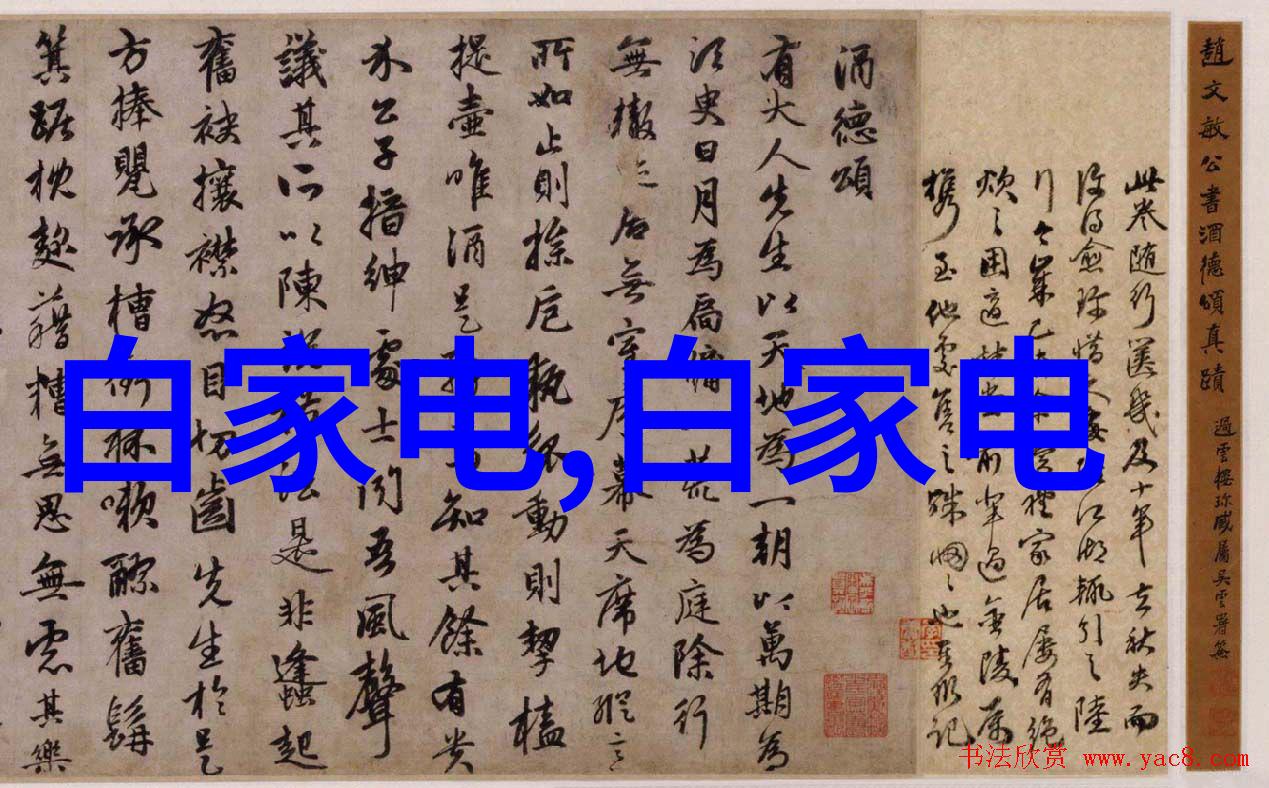 趙文敏公書酒德頌真蹟
過雲樓珍藏屬吳雲署簽
此卷随行篋幾及十年去秋失而
復得愈珍惜江湖輒引之陸
行家居屢有絶
炊之困適前輩過金陵属
携至他處售之殊惘〻也記
酒德頌
有大人先生以天地為一朝以萬期為
須臾日月為扃牖八荒為庭除行
無轍迹居無室廬幕天席地縱意
所如止則操卮執觚動則挈榼
提壺唯酒是務焉知其餘有貴
介公子搢紳處士聞吾風聲
議其所以陳說禮法是非蠭起
奮袂攘襟怒目切齒先生於是
方捧甖承槽銜杯漱醪奮髯
箕踞枕麴藉糟無思無慮其樂
白家电,白家电
书法欣赏 www.yac8.com